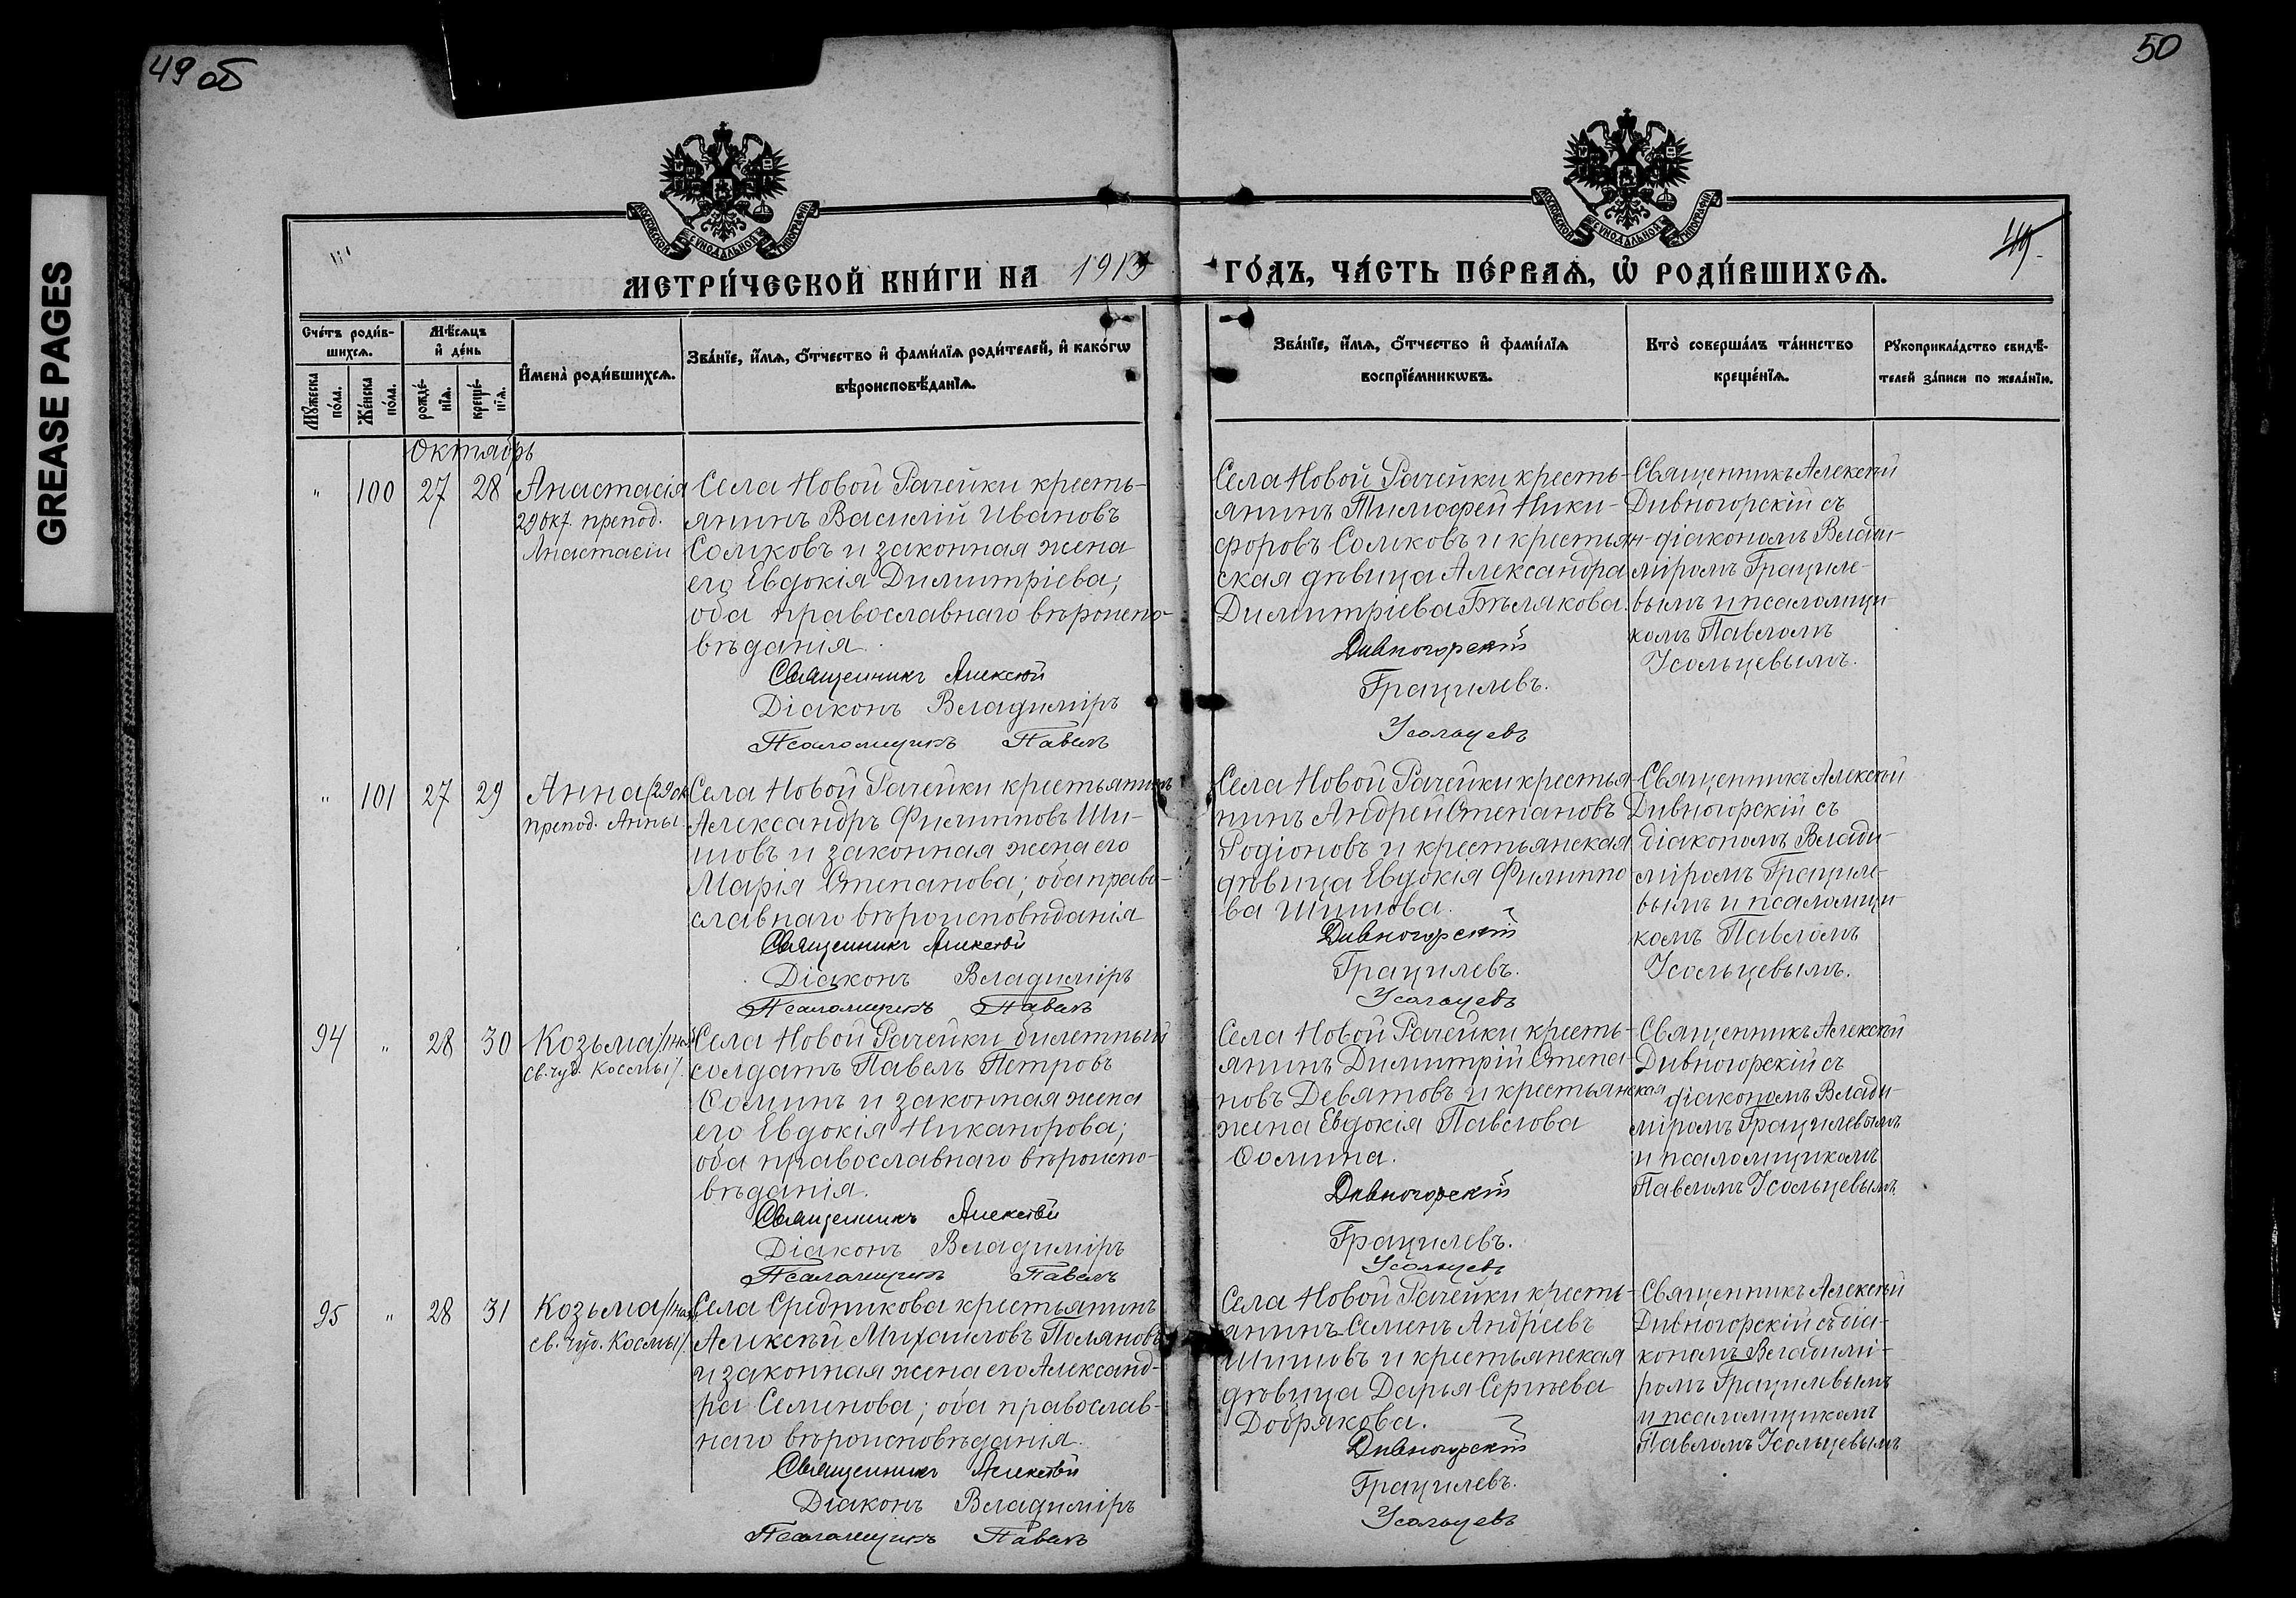 49 об
50
GREASE PAGES
МОСКОВСКОЙ СѴНОДАЛЬНОЙ ТИПОГРАФІИ
МОСКОВСКОЙ СѴНОДАЛЬНОЙ ТИПОГРАФІИ
МЕТРИ́ЧЕСКОЙ КНИ́ГИ НА 1913
ГО́ДЪ, ЧА́СТЬ ПЕ́РВАѦ, Ѡ҆ РОДИ́ВШИХСѦ.
49.
Сче́тъ роди́в-
шихсѧ.
Мꙋ́жеска по́ла.
Же́нска по́ла.
Мѣ́сѧцъ и҆ де́нь
рожде́-
нїѧ.
креще́-
нїѧ.
И҆мена̀ роди́вшихсѧ.
Зва́нїе, и҆́мѧ, ѻ҆́тчество и҆ фами́лїѧ роди́телей, и҆ како́гѡ
вѣроисповѣ́данїѧ.
Зва́нїе, и҆́мѧ, ѻ҆́тчество и҆ фами́лїѧ
воспрїе́мникѡвъ.
Кто̀ соверша́лъ та́инство
креще́нїѧ.
Рꙋкоприкла́дство свидѣ́-
телей за́писи по жела́нїю.
Октябрь
" 100 27 28
Анастасія
29 окт. препод.
Анастасіи
Села Новой Рачейки кресть-
янинъ Василій Ивановъ
Сомковъ и законная жена
его Евдокія Димитріева;
оба православнаго вѣроиспо-
вѣданія.
Священникъ Алексѣй
Діаконъ Владиміръ
Псаломщикъ Павелъ
Села Новой Рачейки кресть-
янинъ Тимофей Ники-
форовъ Сомковъ и крестьян-
ская дѣвица Александра
Димитріева Бѣлякова.
Дивногорскій
Грацилевъ.
Усольцевъ
Священникъ Алексѣй
Дивногорскій съ
діакономъ Влади-
міромъ Грациле-
вымъ и псаломщи-
комъ Павломъ
Усольцевымъ.
" 101 27 29
Анна (29 ок.
препод. Анны.
Села Новой Рачейки крестьянинъ
Александръ Филипповъ Ши-
шовъ и законная жена его
Марія Степанова; оба право-
славнаго вѣроисповѣданія
Священникъ Алексѣй
Діаконъ Владиміръ
Псаломщикъ Павелъ
Села Новой Рачейки крестья-
нинъ Андрей Степановъ
Родіоновъ и крестьянская
дѣвица Евдокія Филиппо-
ва Шишова.
Дивногорскій
Грацилевъ.
Усольцевъ
Священникъ Алексѣй
Дивногорскій съ
діакономъ Влади-
міромъ Грациле-
вымъ и псаломщи-
комъ Павломъ
Усольцевымъ.
94 " 28 30
Козьма (1 ноя.
св. чуд. Космы).
Села Новой Рачейки билетный
солдатъ Павелъ Петровъ
Ѳоминъ и законная жена
его Евдокія Никанорова;
оба православнаго вѣроиспо-
вѣданія.
Священникъ Алексѣй
Діаконъ Владиміръ
Псаломщикъ Павелъ
Села Новой Рачейки кресть-
янинъ Димитрій Степа-
новъ Девятовъ и крестьянская
жена Евдокія Павлова
Ѳомина.
Дивногорскій
Грацилевъ.
Усольцевъ
Священникъ Алексѣй
Дивногорскій съ
діакономъ Влади-
міромъ Грацилевымъ
и псаломщикомъ
Павломъ Усольцевымъ.
95 " 28 31
Козьма (1 ноя.
св. чуд. Космы).
Села Средникова крестьянинъ
Алексѣй Михаиловъ Поляновъ
и законная жена его Александ-
ра Семенова; оба православ-
наго вѣроисповѣданія.
Священникъ Алексѣй
Діаконъ Владиміръ
Псаломщикъ Павелъ
Села Новой Рачейки кресть-
янинъ Семенъ Андреевъ
Шишовъ и крестьянская
дѣвица Дарья Сергѣева
Добрякова.
Дивногорскій
Грацилевъ.
Усольцевъ
Священникъ Алексѣй
Дивногорскій съ діа-
кономъ Владимі-
ромъ Грацилевымъ
и псаломщикомъ
Павломъ Усольцевымъ